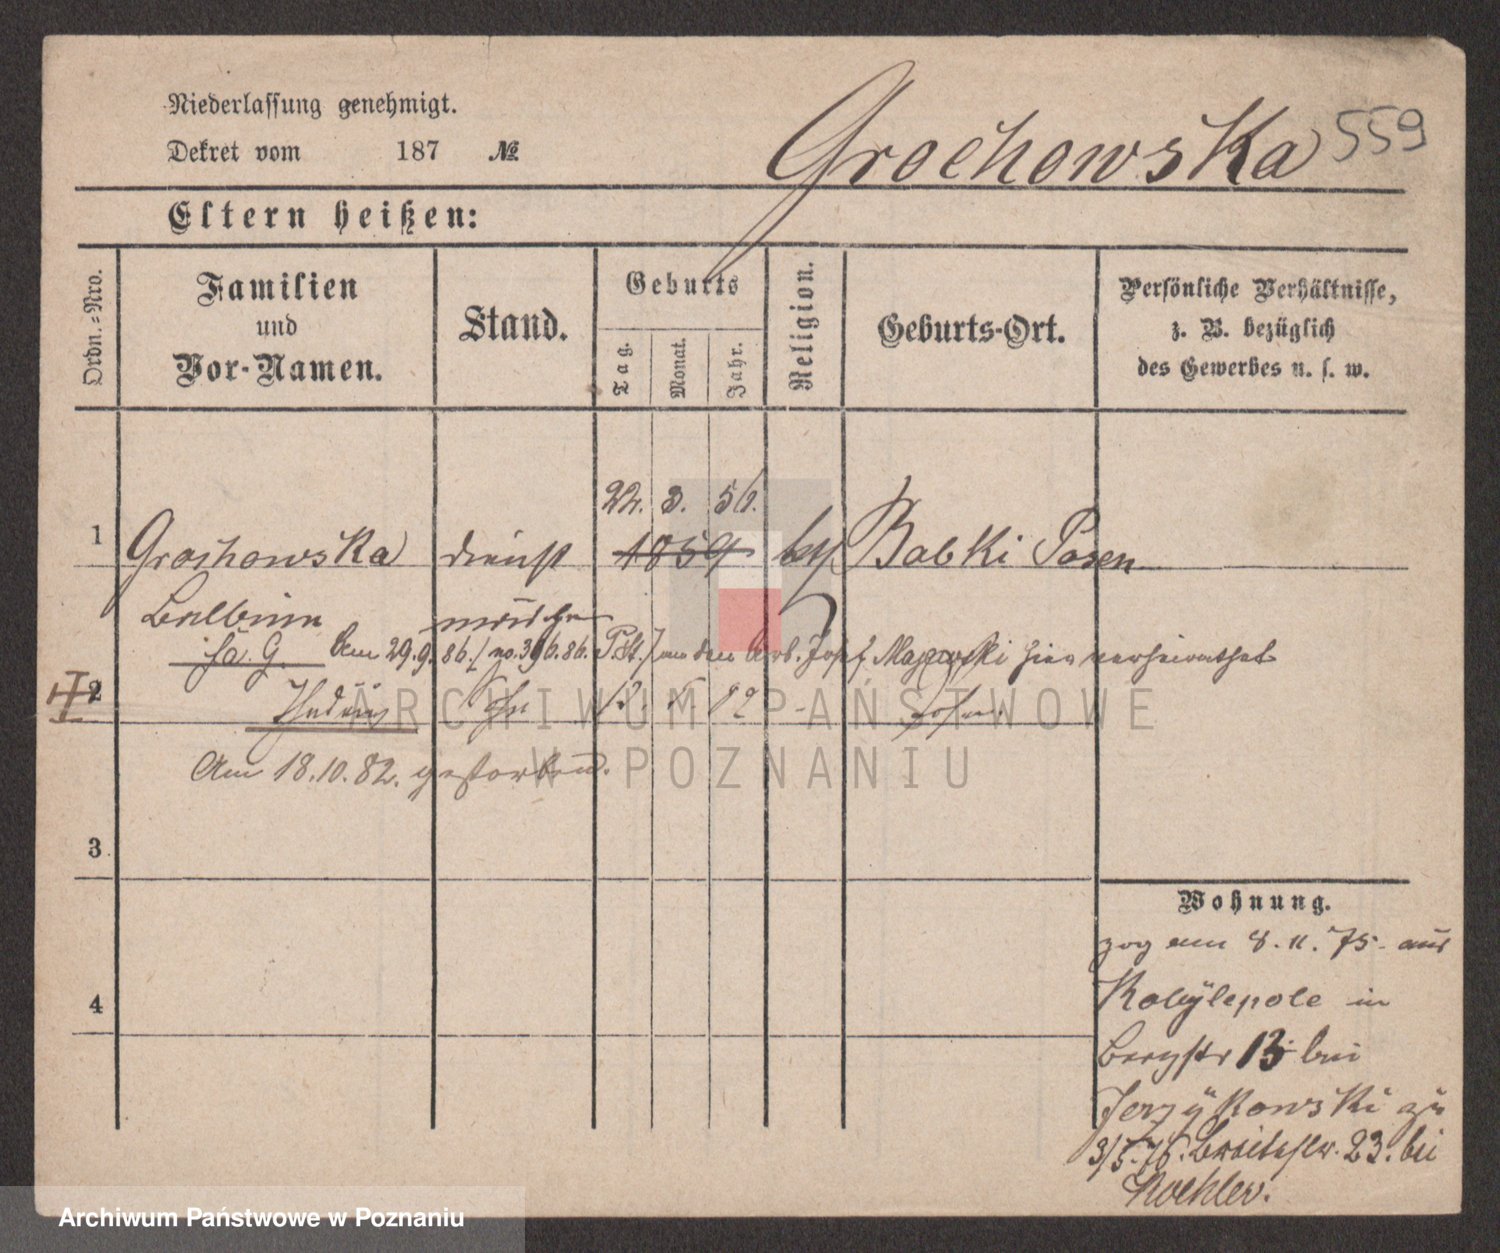 Niederlassung genehmigt.
Dekret vom 187 № Grochowska 559
Eltern heißen:
Ordn.-Nro.
Familien
und
Vor-Namen.
Stand.
Geburts
Tag.
Monat.
Jahr.
Religion.
Geburts-Ort.
Persönliche Verhältnisse,
z. B. bezüglich
des Gewerbes u. s. w.
22. 3. 56.
1 Grochowska dienst 1859 Babki Posen
Balbina
Am 29.9.86. / no. 396.86. hier verheirathet
2
Am 18.10.82. gestorben.
3
4
Wohnung.
zog am 8.11.75. aus
Kobylepole in
Bergstr 13 bei
Jerzykowski zu
3/5.76. Breitestr. 23. bei
Koehler.
ARCHIWUM PAŃSTWOWE
W POZNANIU
Archiwum Państwowe w Poznaniu